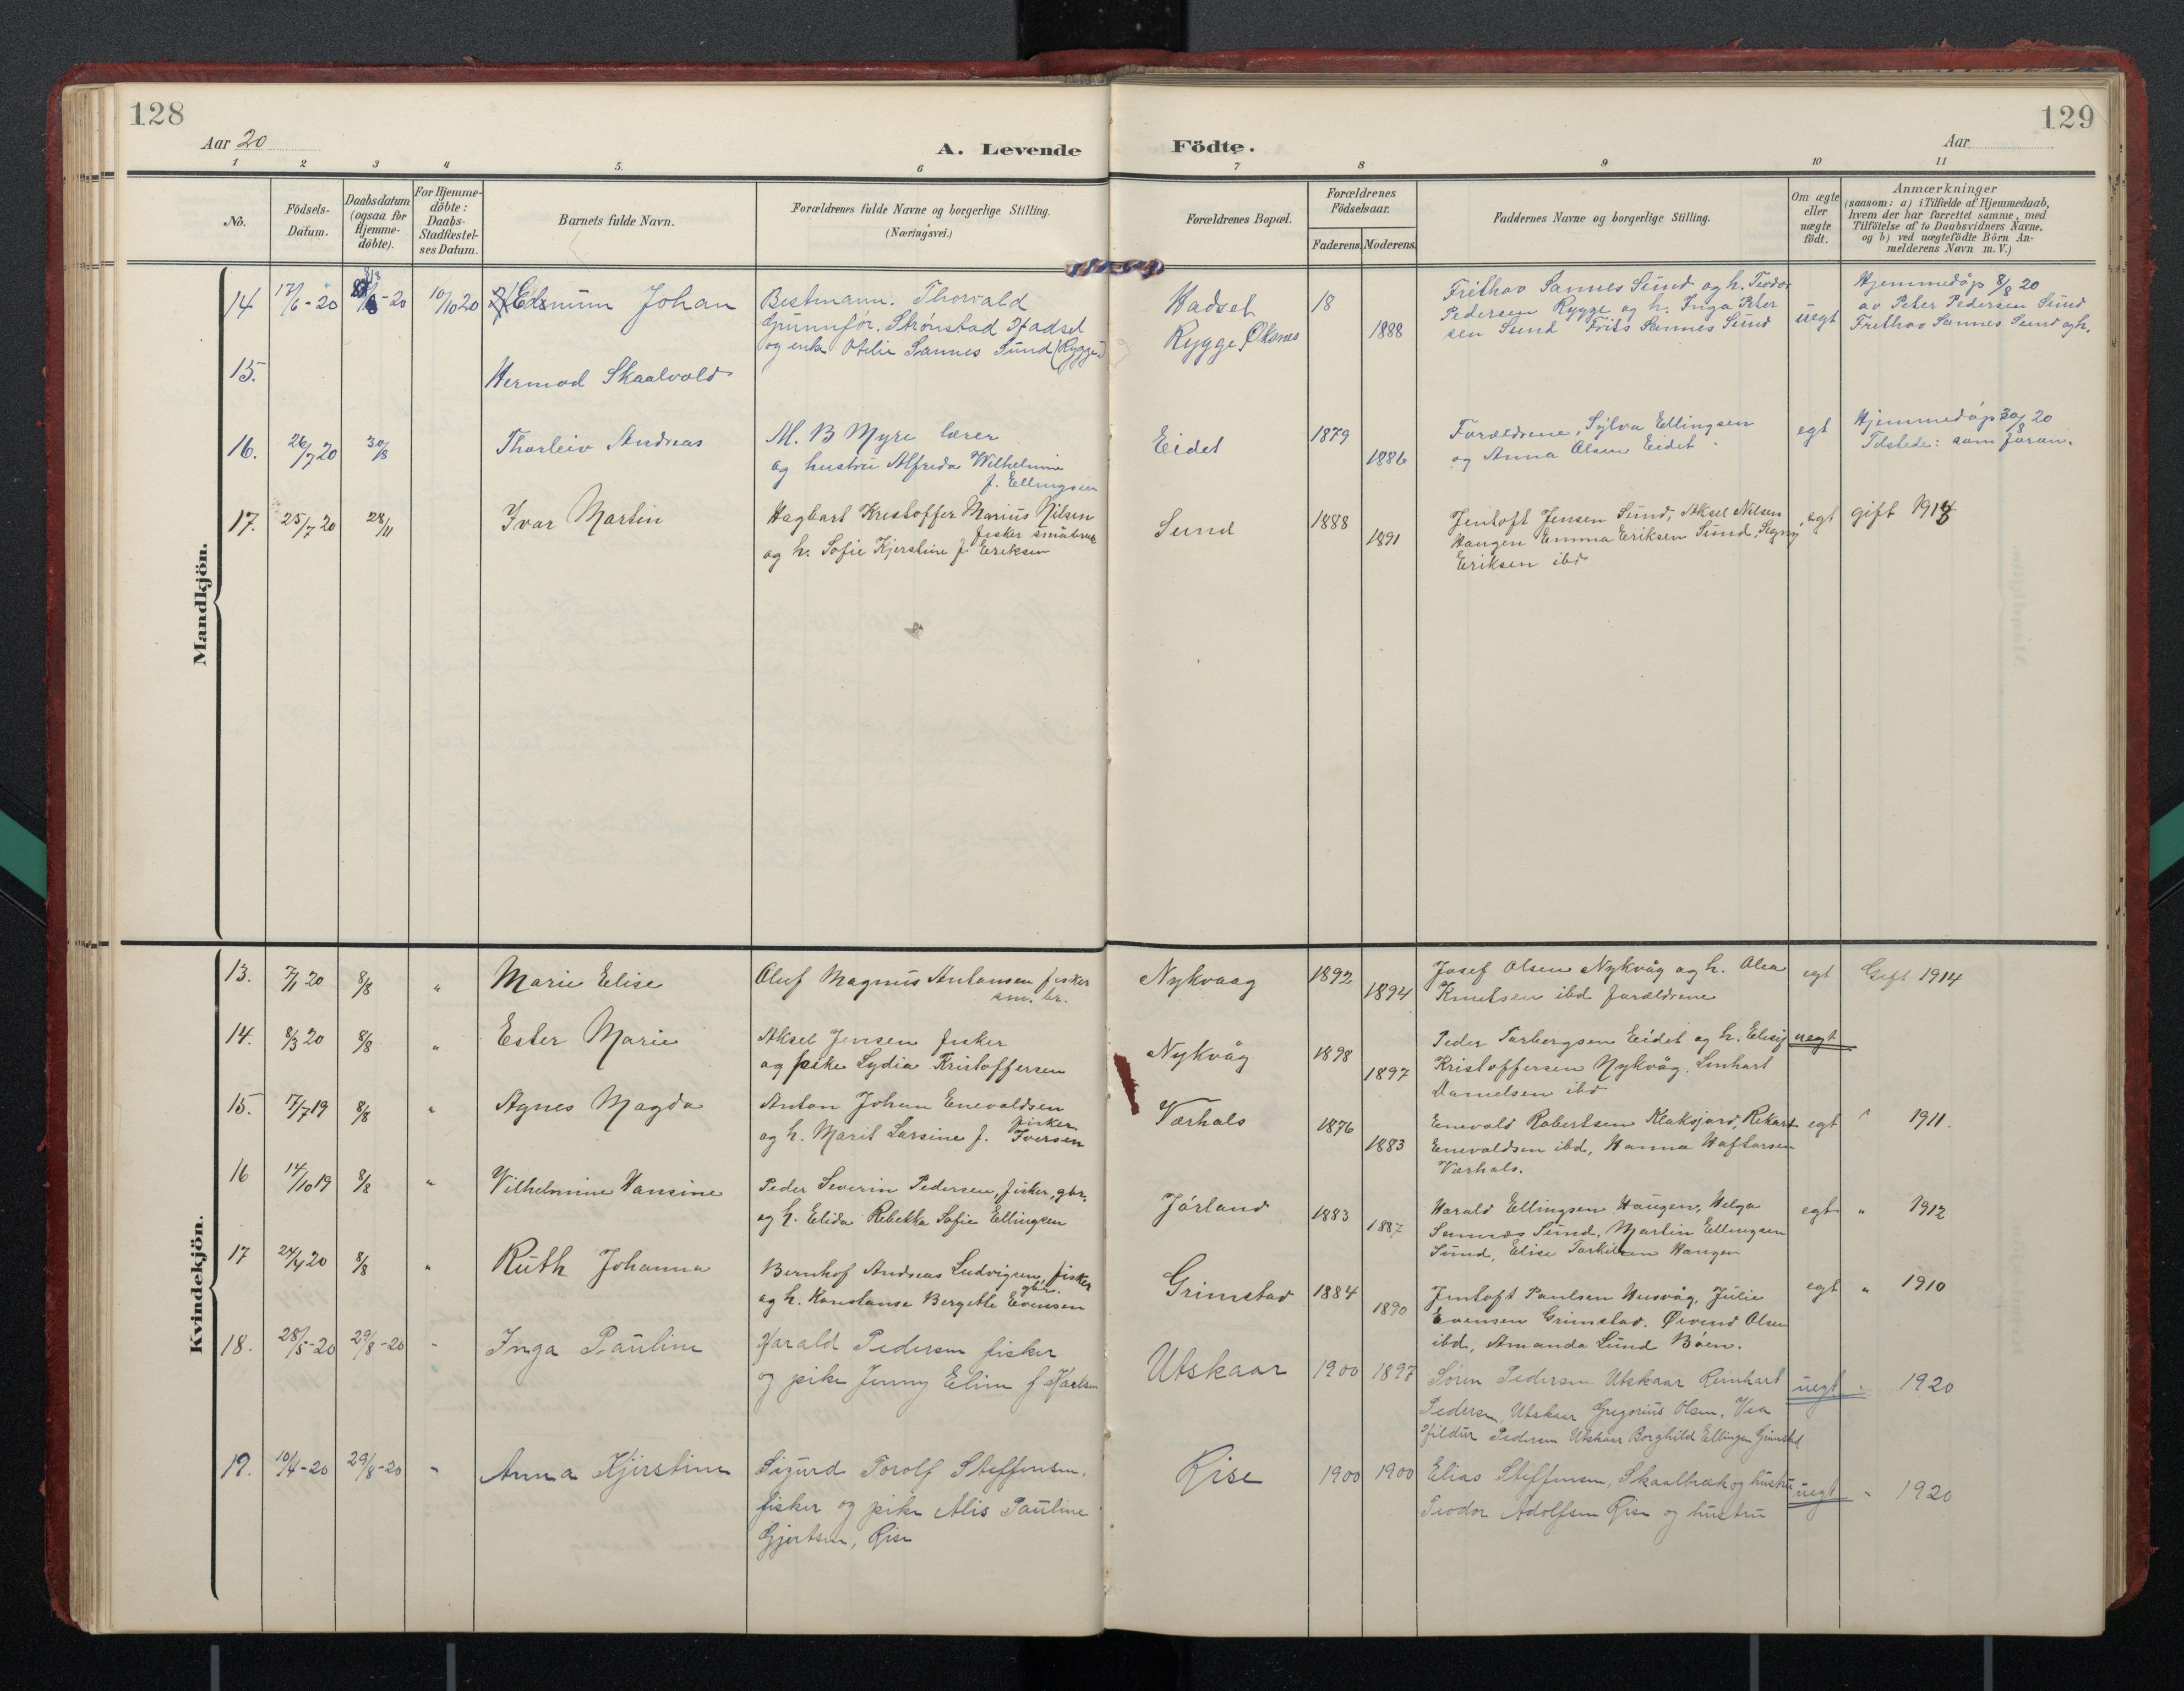 128
Aar 20
A. Levende
1 2 3 4 5. 6
No.
Födsels-
Datum.
Daabsdatum
(ogsaa for
Hjemme-
döbte).
For Hjemme-
döbte:
Daabs-
Stadfæstel-
ses Datum.
Barnets fulde Navn.
Forældrenes fulde Navne og borgerlige Stilling.
(Næringsvei.)
Mandkjön.
14 17/6-20 8/8-20 10/10 20 Johan
Bestmann. Thorvald
Gunnfør. Strønstad Hadsel
og enke Otilie Sannes Sund (Rygge)
15.
Hermod Skaalvold
16. 26/7 20 30/8 Thorleiv Andreas
M. B Myre lærer
og hustru Alfreda Wilhelmine
f. Ellingsen
17. 25/7 20 28/11 Ivar Martin
Hagbart Kristoffer Marius Nilsen
fisker småbruk
og h. Sofie Kjerstine f. Eriksen
Kvindekjön.
13. 7/1 20 8/8 " Marie Elise
Oluf Magnus Antonsen fisker
sm. br.
14. 8/3 20 8/8 " Ester Marie
Aksel Jensen fisker
og pike Lydia Kristoffersen
15. 17/7 19 8/8 " Agnes Magda
Anton Johan Enevaldsen
fisker
og h. Marit Larsine f. Iversen
16 14/10 19 8/8 " Vilhelmine Hansine
Peder Severin Pedersen, fisker, gbr.
og h. Elida Rebekka Sofie Ellingsen
17 24/4 20 8/8 " Ruth Johanna
Bernhof Andreas Ludvigsen, fisker
gbr.
og h. Konstanse Bergette Evensen
18. 28/5-20 29/8-20 " Inga Pauline
Harald Pedersen fisker
og pike Jenny Elim f Karlsen
19. 10/4-20 29/8-20 " Anna Kjerstine
Sigurd Torolf Steffensen.
fisker og pike Alis Pauline
Gjertsen, Rise
129
Födte.
Aar
7 8 9 10 11
Forældrenes Bopæl.
Forældrenes
Födselsaar.
Faderens. Moderens.
Faddernes Navne og borgerlige Stilling.
Om ægte
eller
uægte
födt.
Anmærkninger
(saasom: a) i Tilfælde af Hjemmedaab,
hvem der har forrettet samme, med
Tilföielse af to Daabsvidners Navne,
og b) ved uægtefödte Börn An-
melderens Navn m. V.)
Hadsel
Rygge, Øksnes
18 1888
Frithov Sannes Sund og h. Teodor
Pedersen Rygge og h. Inga Peter
sen Sund Frits Sannes Sund
uegt
Hjemmedøp 8/8 20
av Peter Pedersen Sund
Frithov Sannes Sund og h.
Eidet 1879 1886
Forældrene, Sylva Ellingsen
og Anna Olsen Eidet
egt
Hjemmedøp 30/8 20
Tilstede: som foran.
Sund 1888 1891
Jentoft Jensen Sund, Aksel Nilsen
Haugen Emma Eriksen Sund, Signy
Eriksen ibd
egt gift 1913
Nykvaag 1892 1894
Josef Olsen Nykvåg og h. Olea
Knutsen ibd forældrene
egt Gift 1914
Nykvåg 1898 1897
Peder Torbergsen Eidet og h. Elisif
Kristoffersen Nykvåg. Linhart
Danielsen ibd
uegt
Værhals 1876 1883
Enevold Robertsen Klaksjord, Rikart
Enevoldsen ibd, Hanna Haftorsen
Værhals.
egt " 1911.
Jørland 1883 1887
Harald Ellingsen Haugen, Helga
Sannes Sund, Martin Ellingsen
Sund, Elise Torkilsen Haugen
egt " 1912
Grimstad 1884 1890
Jentoft Paulsen Husvåg, Julie
Evensen Grimstad. Øivind Olsen
ibd, Amanda Lund Bøen.
egt " 1910
Utskaar 1900 1897
Søren Pedersen Utskaar Reinhart
Pedersen, Utskaar Gregorius Olsen, Vea
Hildur Pedersen Utskaar Borghild Ellingsen Grimstad
uegt " 1920
Rise 1900 1900
Elias Steffensen, Skaalbrak og hustru
Teodor Adolfsen Rise og hustru
uegt " 1920